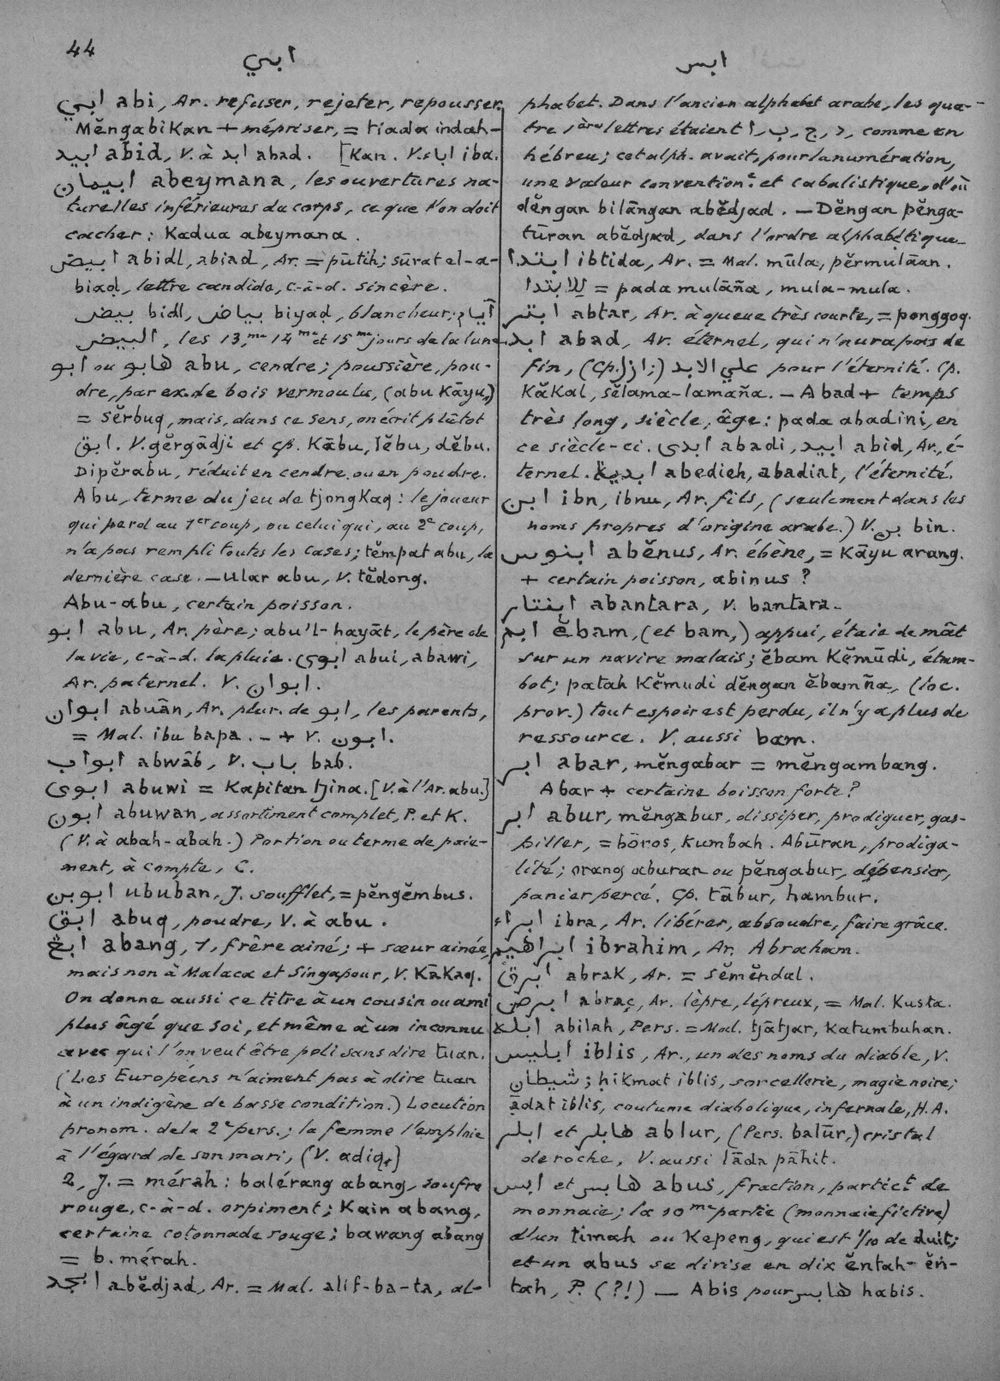 44
ابي
ابس
ابي abi, Ar. refuser, rejeter, repousser.
Mĕngabikan + mépriser, = tiada indah-
ابيد abid, V. à ابد abad. [kan. V. اباء iba.
ابيمان abeymana, les ouvertures na-
turelles inférieures du corps, ce que l'on doit
cacher: Kadua abeymana.
ابيض abidl, abiad, Ar. = pūtih; sūrat el-a-
biaḍ, lettre candide, c-à-d. sincère.
بيض bidl, بياض biyaḍ, blancheur; آيام
البيض, les 13,me 14me et 15me jours de la lune.
ابو ou هابو abu, cendre; poussière, pou-
dre, par ex. de bois vermoulu, (abu Kāyu,)
= sĕrbuq, mais, dans ce sens, on écrit plûtot
ابق. V. gĕrgādji et cp. Kābu, lĕbu, dĕbu.
Dipĕrabu, réduit en cendre ou en poudre.
Abu, terme du jeu de tjongkaq: le joueur
qui perd au 1er coup, ou celui qui, au 2e coup,
n'a pas rempli toutes les cases; tĕmpat abu, la
dernière case. — Ular abu, V. tĕdong.
Abu-abu, certain poisson.
ابو abu, Ar. père; abu'l-hayāt, le père de
la vie, c-à-d. la pluie. ابوي abui, abawi,
Ar. paternel. V. ابوان.
ابوان abuān, Ar. plur. de ابو, les parents,
= Mal. ibu bapa. — + V. ابون.
ابواب abwāb, V. باب bab.
ابوي abuwi = Kapitan tjina. [V. à l'Ar. abu.]
ابون abuwan, assortiment complet, P. et K.
(V. à abah-abah.) Portion ou terme de paie-
ment, à compte, C.
ابوبن ububan, J. soufflet, = pĕngĕmbus.
ابق abuq, poudre, V. à abu.
ابڠ abang, 1, frère aîné; + sœur ainée,
mais non à Malaca et Singapour, V. Kākaq.
On donne aussi ce titre à un cousin ou ami
plus âgé que soi, et même à un inconnu
avec qui l'on veut être poli sans dire tuan.
(Les Européens n'aiment pas à dire tuan
à un indigène de basse condition.) Locution
pronom. de la 2e pers.; la femme l'emploie
à l'égard de son mari, (V. adiq.)
2, J. = mérah: balérang abang, soufre
rouge, c-à-d. orpiment; Kain abang,
certaine cotonnade rouge; bawang abang
= b. mérah.
ابجد abĕdjad, Ar. = Mal. alif-ba-ta, al-
phabet. Dans l'ancien alphabet arabe, les qua-
tre 1ères lettres étaient ا, ب, ج, د, comme en
hébreu; cet alph. avait, pour la numération,
une valeur convention.le et cabalistique, d'où
dĕngan bilāngan abĕdjad. — Dĕngan pĕnga-
tūran abĕdjad, dans l'ordre alphabétique.
ابتدا ibtida, Ar. = Mal. mūla, pĕrmulāan.
للابتدا = pada mulāña, mula-mula.
ابتر abtar, Ar. à queue très courte, = ponggoq.
ابد abad, Ar. éternel, qui n'aura pas de
fin, (Cp. ازل;) علي الابد pour l'éternité. Cp.
Kăkal, sĕlama-lamaña. — Abad + temps
très long, siècle, âge: pada abad ini, en
ce siècle-ci. ابدي abadi, ابيد abid, Ar., é-
ternel. ابدية abedieh, abadiat, l'éternité.
ابن ibn, ibnu, Ar. fils, (seulement dans les
noms propres d'origine arabe.) V. بن bin.
ابنوس abĕnus, Ar. ébène, = Kāyu arang.
+ certain poisson, abinus?
ابنتار abantara, V. bantara.
ابم ĕbam, (et bam,) appui, étaie de mât
sur un navire malais; ĕbam Kĕmūdi, étam-
bot; patah Kĕmudi dĕngan ĕbamña, (loc.
prov.) tout espoir est perdu, il n'y a plus de
ressource. V. aussi bam.
ابر abar, mĕngabar = mĕngambang.
Abar + certaine boisson forte?
ابر abur, mĕngabur, dissiper, prodiguer, gas-
piller, = bōros, kumbah. Abūran, prodiga-
lité; orang aburan ou pĕngabur, dépensier,
panier percé. Cp. tābur, hambur.
ابراء ibra, Ar. libérer, absoudre, faire grâce.
ابراهيم ibrahim, Ar. Abraham.
ابرق abrak, Ar. = sĕmĕndal.
ابرص abraç, Ar. lèpre, lépreux, = Mal. Kusta.
ابله abilah, Pers. = Mal. tjātjar, katumbuhan.
ابليس iblis, Ar., un des noms du diable, V.
شيطان; hikmat iblis, sorcellerie, magie noire;
ādat iblis, coutume diabolique, infernale, H.A.
ابلر et هابلر ablur, (Pers. balūr,) cristal
de roche, V. aussi lāda pāhit.
ابس et هابس abus, fraction, partic.t de
monnaie; la 10me partie (monnaie fictive)
d'un timah ou Kepeng, qui est 1/10 de duit;
et un abus se divise en dix ĕntah-ĕn-
tah, P. (?!) — Abis pour هابس habis.